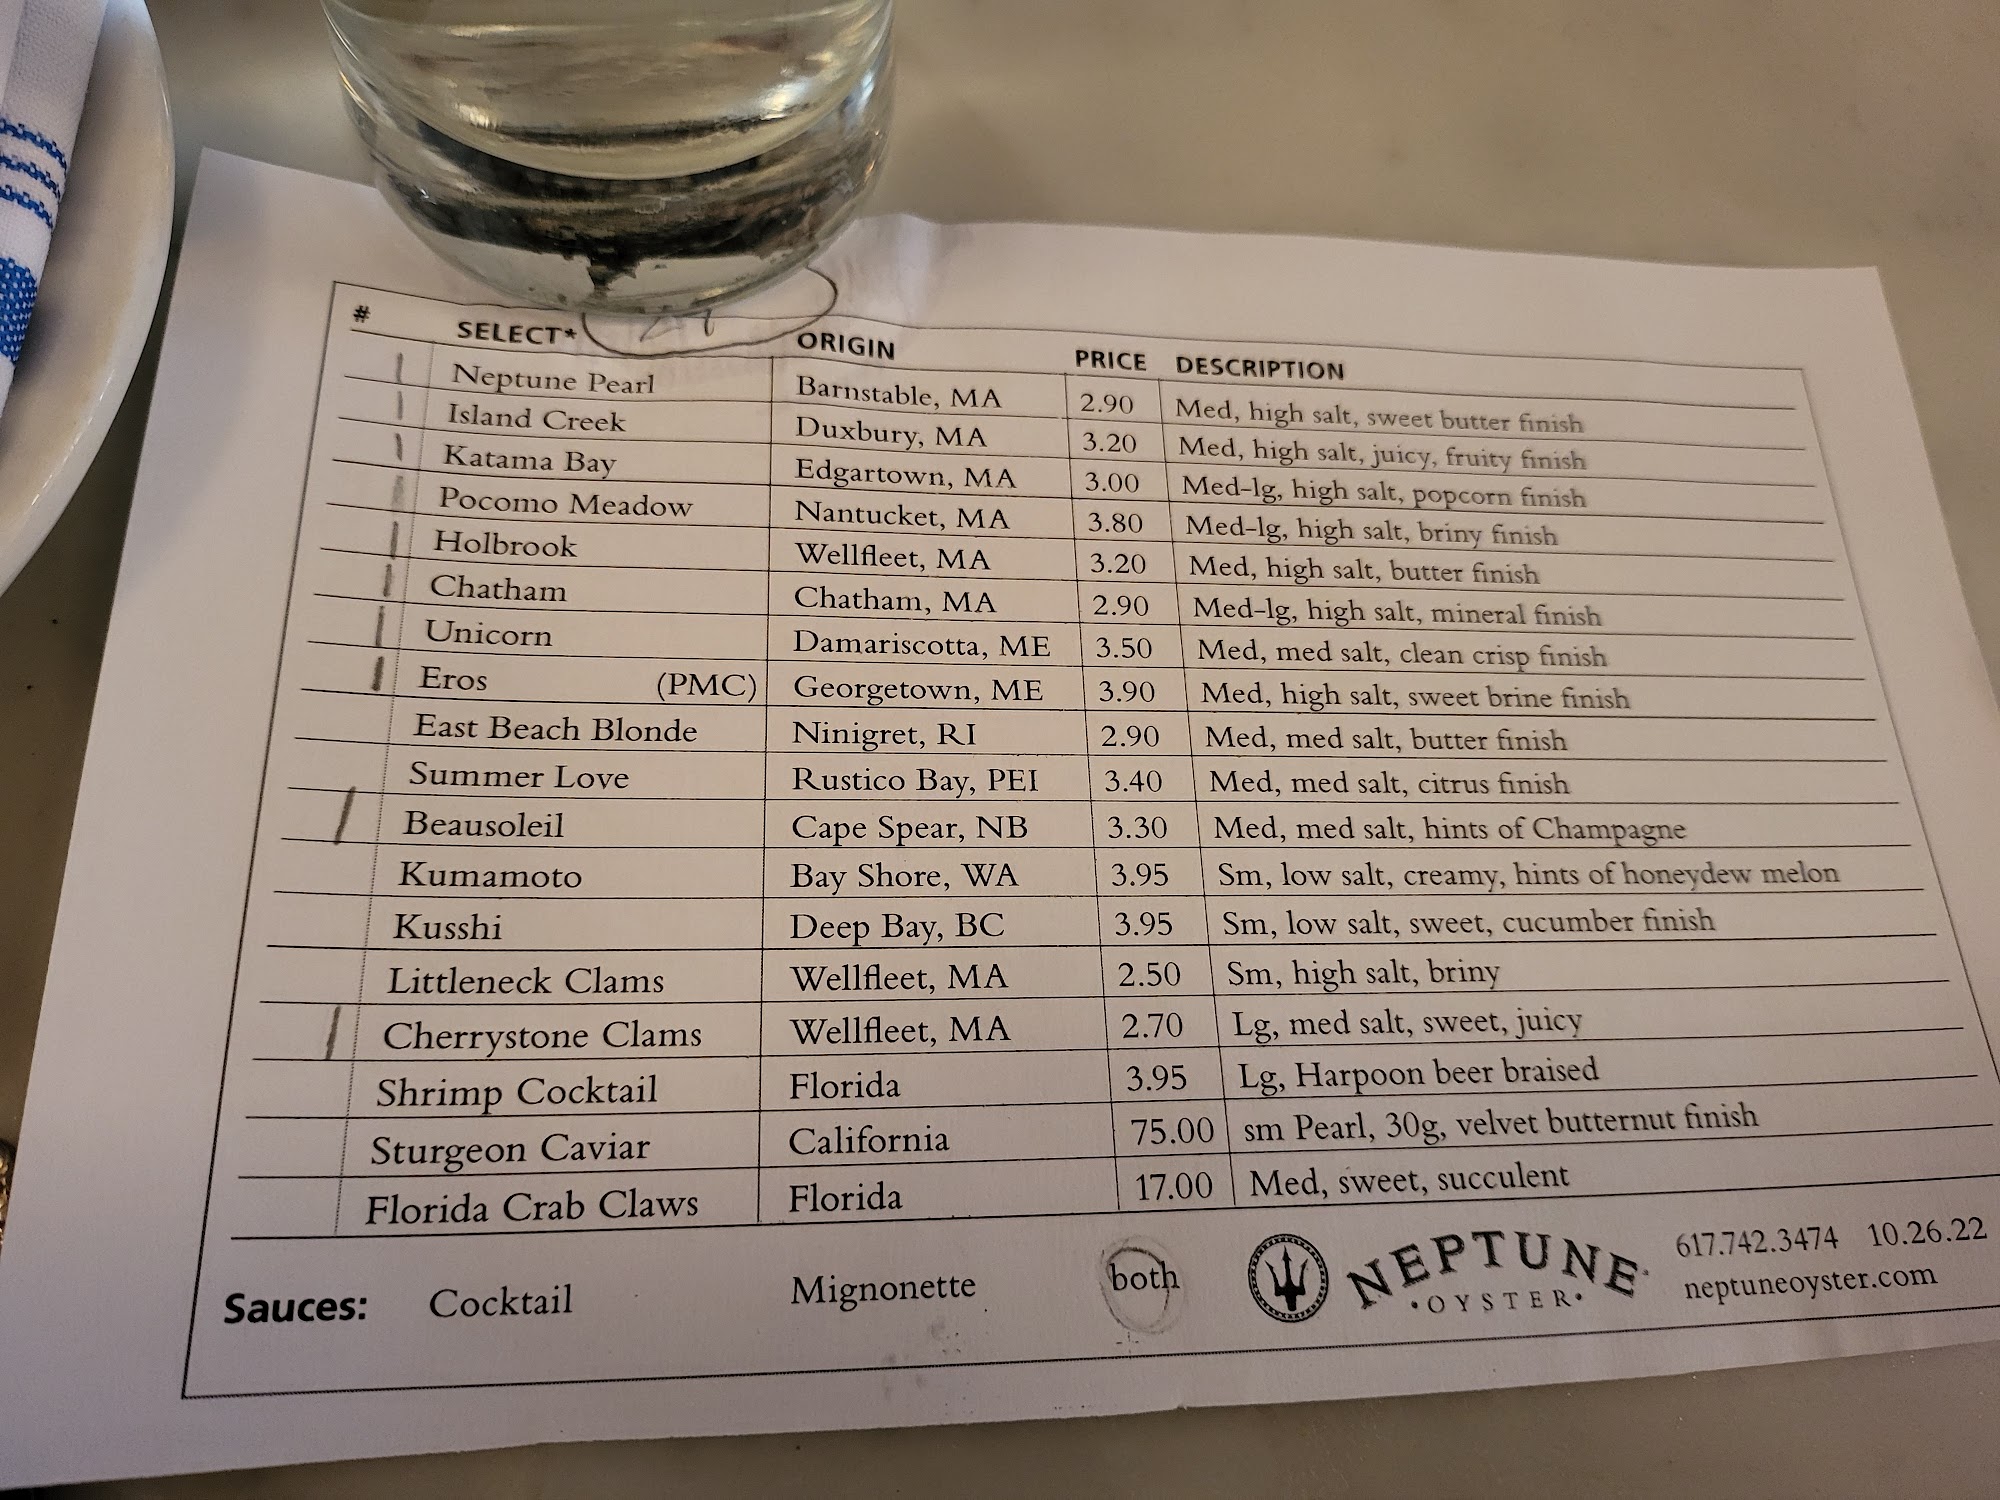 # SELECT* ORIGIN PRICE DESCRIPTION
| Neptune Pearl Barnstable, MA 2.90 Med, high salt, sweet butter finish
| Island Creek Duxbury, MA 3.20 Med, high salt, juicy, fruity finish
| Katama Bay Edgartown, MA 3.00 Med-lg, high salt, popcorn finish
Pocomo Meadow Nantucket, MA 3.80 Med-lg, high salt, briny finish
| Holbrook Wellfleet, MA 3.20 Med, high salt, butter finish
| Chatham Chatham, MA 2.90 Med-lg, high salt, mineral finish
| Unicorn Damariscotta, ME 3.50 Med, med salt, clean crisp finish
| Eros (PMC) Georgetown, ME 3.90 Med, high salt, sweet brine finish
East Beach Blonde Ninigret, RI 2.90 Med, med salt, butter finish
Summer Love Rustico Bay, PEI 3.40 Med, med salt, citrus finish
| Beausoleil Cape Spear, NB 3.30 Med, med salt, hints of Champagne
Kumamoto Bay Shore, WA 3.95 Sm, low salt, creamy, hints of honeydew melon
Kusshi Deep Bay, BC 3.95 Sm, low salt, sweet, cucumber finish
Littleneck Clams Wellfleet, MA 2.50 Sm, high salt, briny
| Cherrystone Clams Wellfleet, MA 2.70 Lg, med salt, sweet, juicy
Shrimp Cocktail Florida 3.95 Lg, Harpoon beer braised
Sturgeon Caviar California 75.00 sm Pearl, 30g, velvet butternut finish
Florida Crab Claws Florida 17.00 Med, sweet, succulent
Sauces: Cocktail Mignonette both
NEPTUNE
• OYSTER •
617.742.3474 10.26.22
neptuneoyster.com